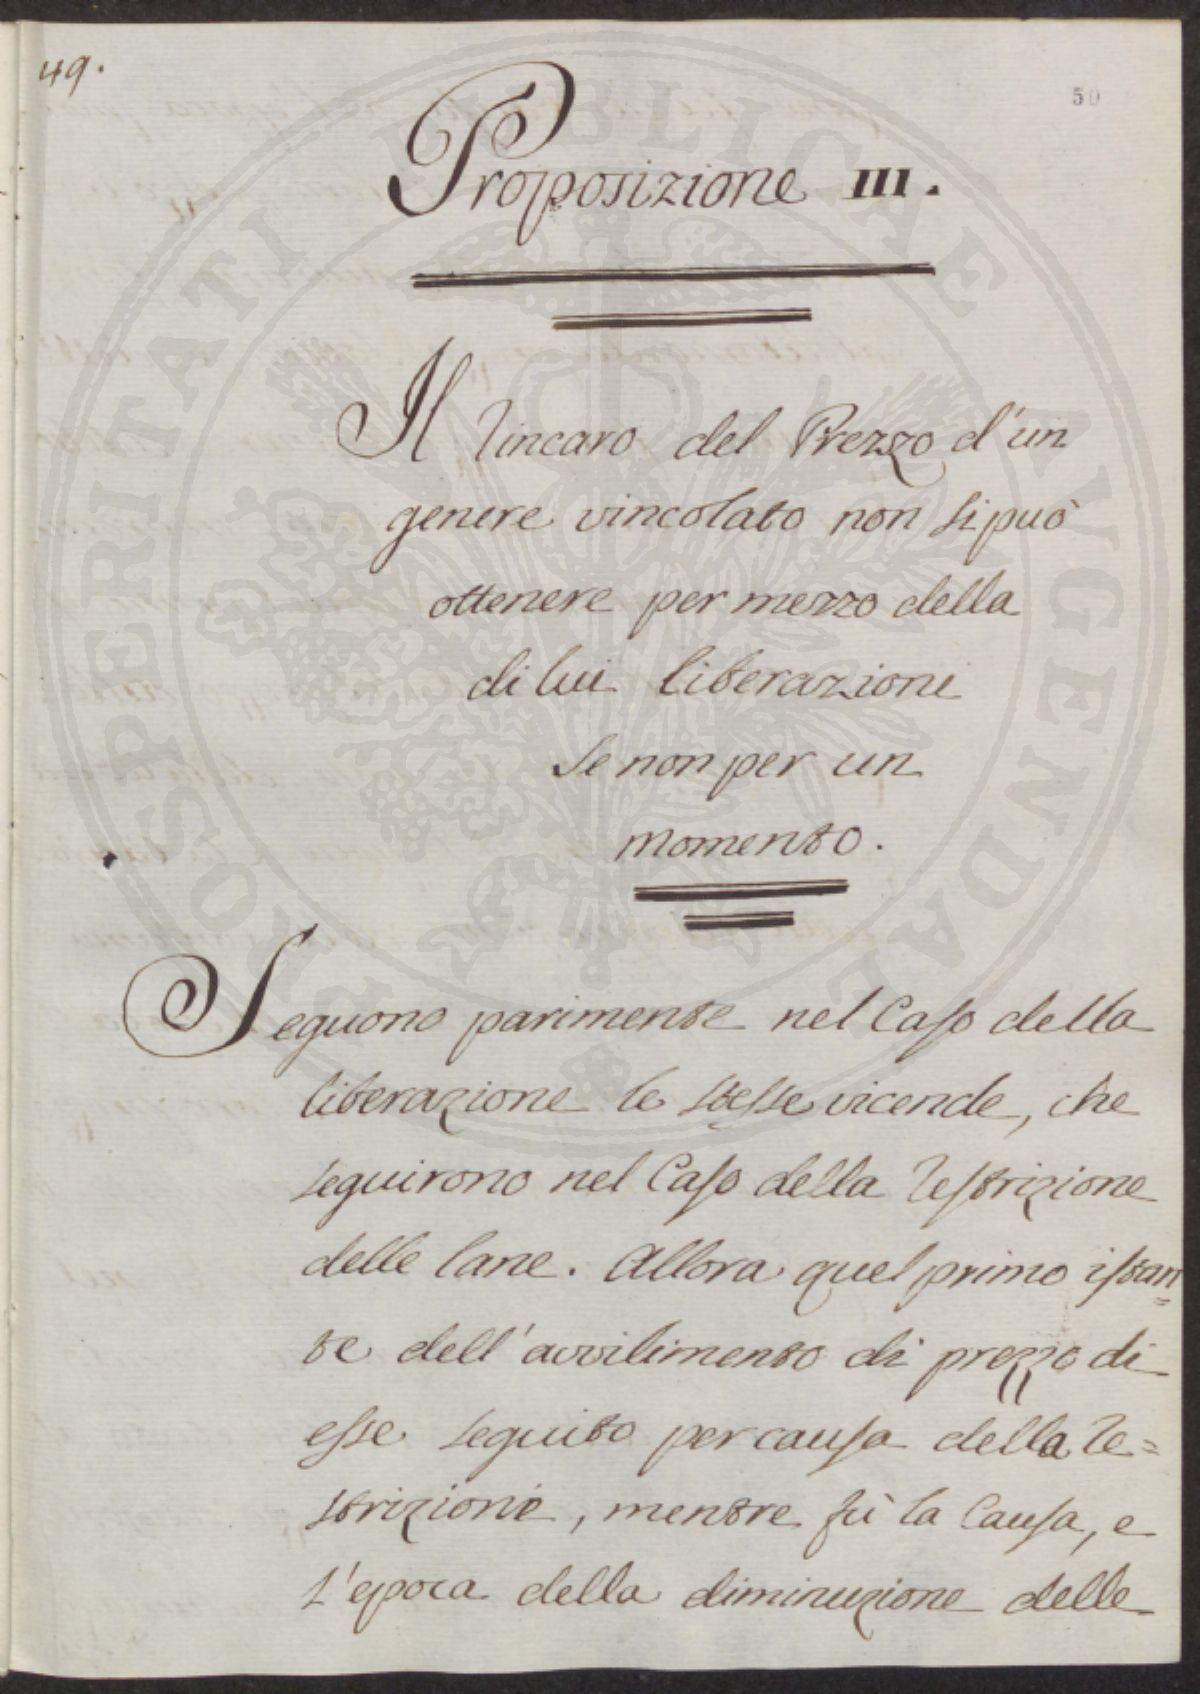 49.
50
Proposizione III.
Il rincaro del Prezzo d'un
genere vincolato non si può
ottenere per mezzo della
di lui liberazione
se non per un
momento.
Seguono parimente nel Caso della
liberazione le stesse vicende, che
seguirono nel Caso della restrizione
delle lane. Allora quel primo istan=
te dell'avvilimento di prezzo di
esse seguito per causa della re=
strizione, mentre fù la Causa, e
l'epoca della diminuzione delle
PROSPERITATI PUBLICAE AUGENDAE